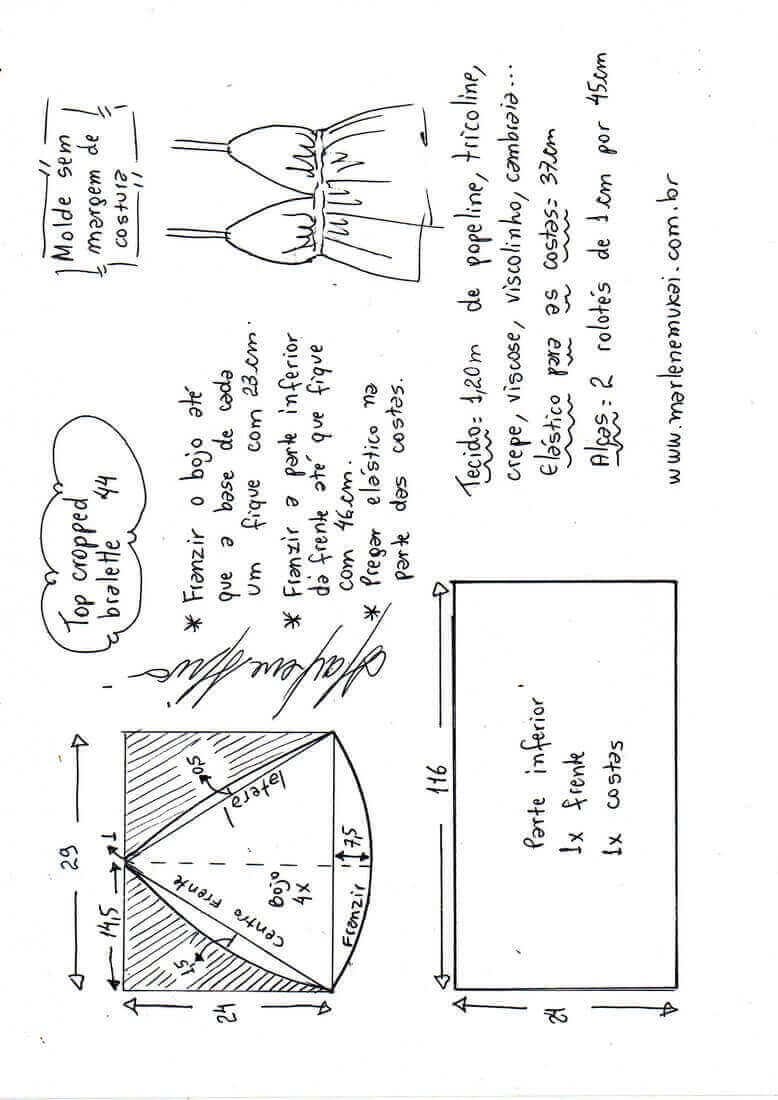 Top cropped
bralette 44
Molde sem
margem de
costura
29
14,5
1
24
1,5
Centro Frente
0,5
lateral
Bojo
4x
7,5
Franzir
* Franzir o bojo até
que a base de cada
um fique com 23cm.
* Franzir a parte inferior
da frente até que fique
com 46cm.
* Pregar elástico na
parte das costas.
116
24
Parte inferior
1x frente
1x costas
Tecido= 1,20m de popeline, tricoline,
crepe, viscose, viscolinho, cambraia...
Elástico para as costas= 37cm
Alças= 2 rolotés de 1cm por 45cm
www.marlenemukai.com.br